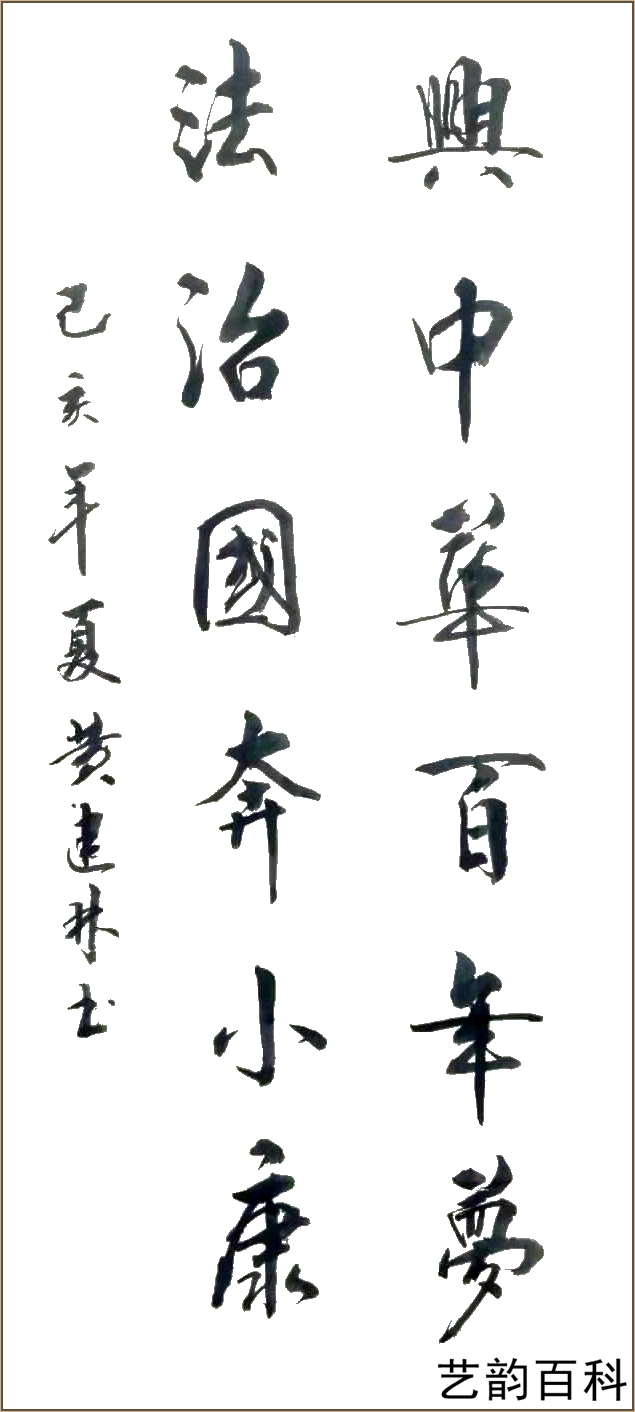 興中華百年夢
法治國奔小康
己亥年夏黄建林书
艺韵百科